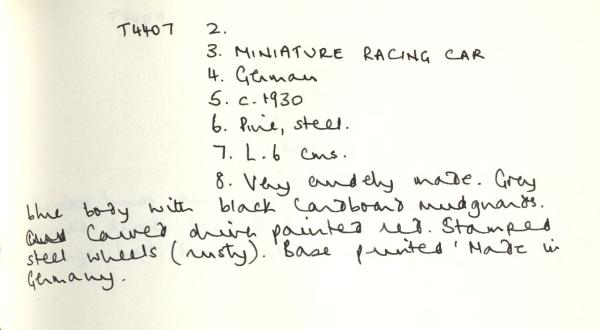 T4407 2.
3. MINIATURE RACING CAR
4. German
5. c. 1930
6. Pine, steel.
7. L. 6 cms.
8. Very crudely made. Grey
blue body with black cardboard mudguards.
Carved driver painted red. Stamped
steel wheels (rusty). Base printed 'Made in
Germany.